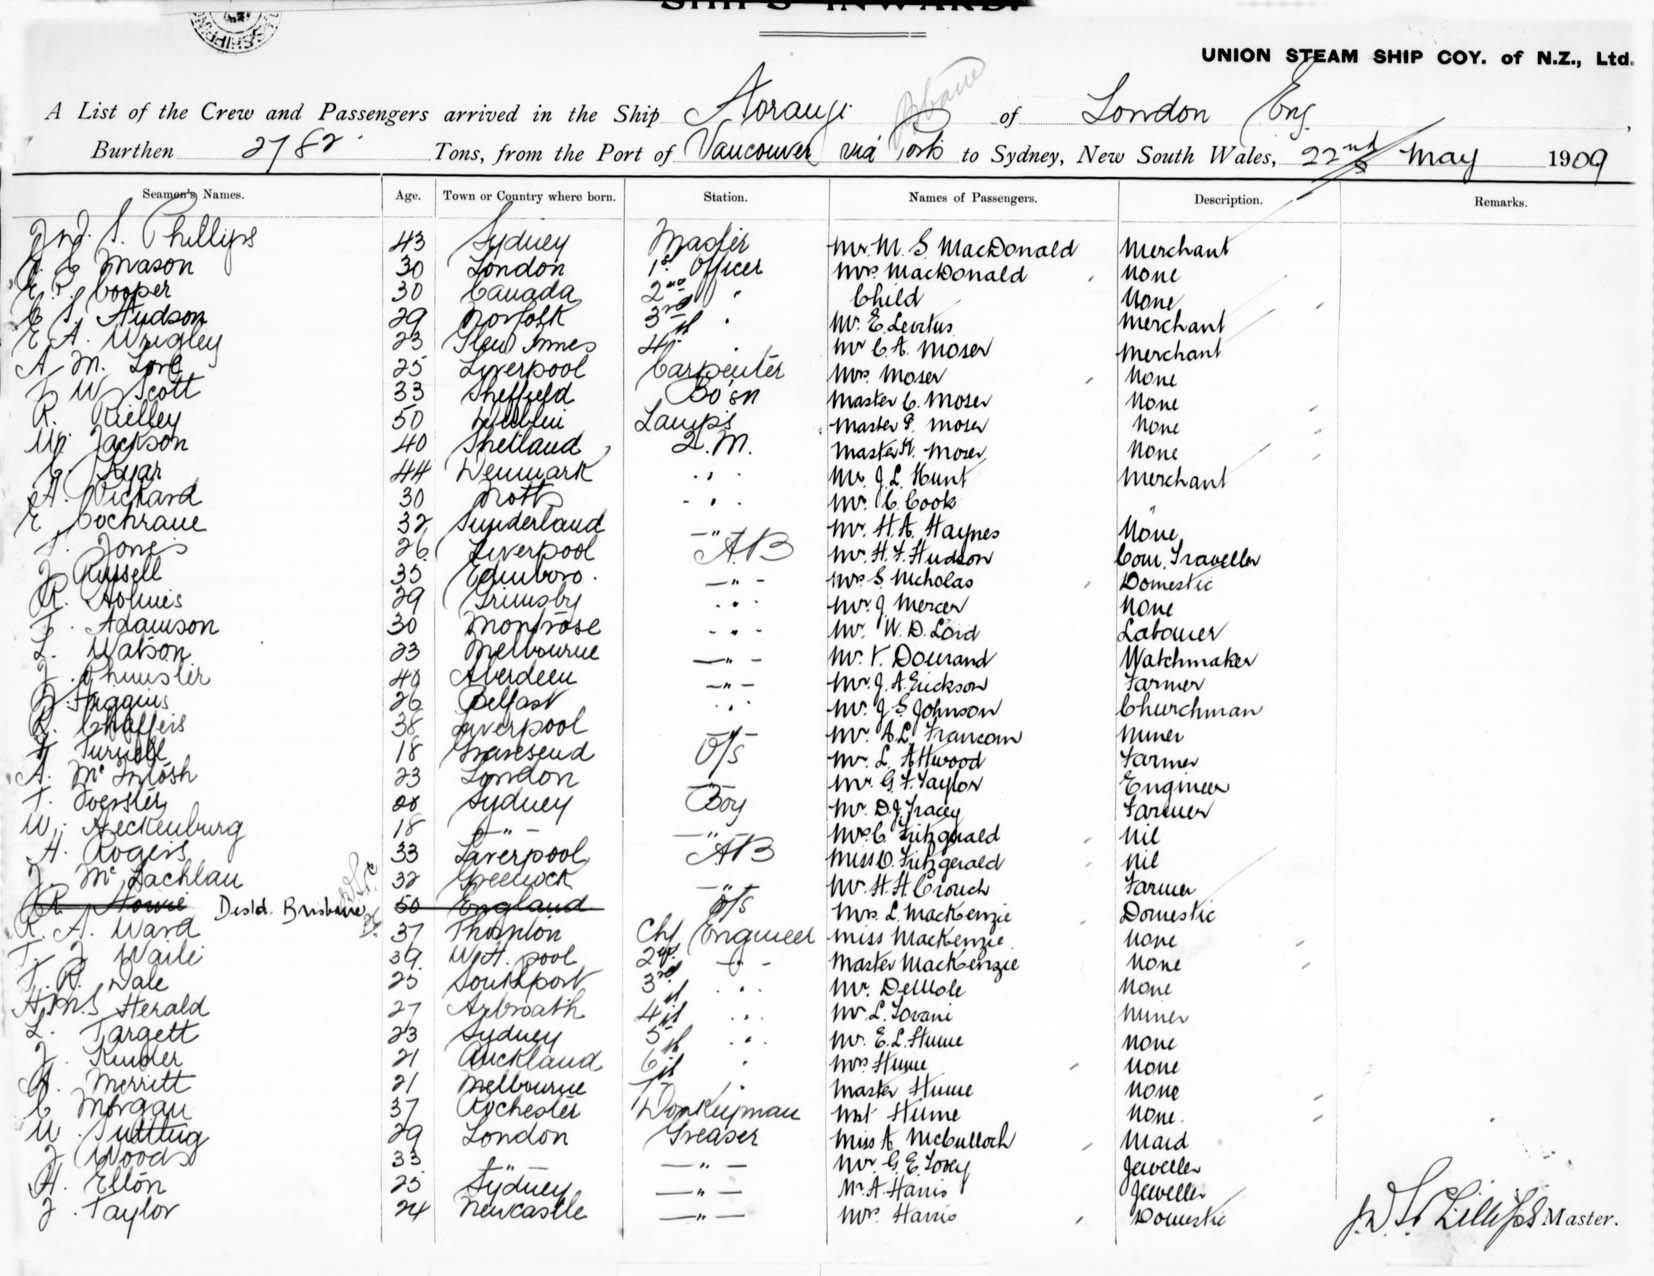 SHIPS INWARD.
UNION STEAM SHIP COY. of N.Z., Ltd.
A List of the Crew and Passengers arrived in the Ship Aorangi of London Eng.
Burthen 2782 Tons, from the Port of Vancouver via Ports to Sydney, New South Wales, 22nd May 1909
Seamen's Names. Age. Town or Country where born. Station. Names of Passengers. Description. Remarks.
Phillips 43 Sydney Master Mr. M. S. MacDonald Merchant
Mason 30 London 1st Officer Mrs. MacDonald None
Cooper 30 Canada 2nd " Child None
C. S. Hudson 29 Norfolk 3rd " Mr. E. Levitus Merchant
E. A. Wrigley 23 Glen Innes 4th " Mr. C. A. Moser Merchant
A. M. Love 25 Liverpool Carpenter Mrs. Moser None
W. Scott 33 Sheffield Bo'sn Master C. Moser None
R. Rielley 50 Dublin Lamps Master Moser None
Wm. Jackson 40 Shetland Q.M. Master Moser None
C. Kjar 44 Denmark " Mr. J. L. Hunt Merchant
A. Pichard 30 Notts " Mr. C. Cook "
E. Cochrane 32 Sunderland " Mr. H. A. Haynes None
Jones 26 Liverpool A.B Mr. H. F. Hudson Com. Traveller
J. Russell 35 Edinboro. " Mrs. S. Nicholas Domestic
R. Holmes 29 Grimsby " Mr. J. Mercer None
Adamson 30 Montrose " Mr. W. D. Lord Labourer
L. Watson 23 Melbourne " Mr. V. Dourand Watchmaker
J. 40 Aberdeen " Mr. J. A. Erickson Farmer
Higgins 26 Belfast " Mr. J. S. Johnson Churchman
R. Chaffers 38 Liverpool " Mr. A. L. Francom Miner
18 Gravesend O/S Mr. L. Attwood Farmer
A. McIntosh 23 London " Mr. G. F. Taylor Engineer
Foerster Sydney Boy Mr. D. J. Tracey Farmer
W. Heckenburg 18 " " Mrs. C. Fitzgerald Nil
A. Rogers 33 Liverpool A.B Miss O. Fitzgerald Nil
J. McLachlan 32 Greenock " Mr. H. H. Crouch Farmer
R. Howie Desld. Brisbane 50 England O/S Mrs. L. MacKenzie Domestic
R. A. Ward 37 Chf Engineer Miss MacKenzie None
39 W. H. pool 2nd " Master MacKenzie None
R. Dale 25 Southport 3rd " Mr. DeMole None
H.M.S Herald 27 Arbroath 4th " Mr. L. Tovani Miner
L. Targett 23 Sydney 5th " Mr. E. L. Hume None
J. Kinder 21 Auckland 6th " Mrs. Hume None
A. Merritt 21 Melbourne 7th " Master Hume None
C. Morgan 37 Rochester Donkeyman Hume None.
W. 29 London Greaser Miss A. McCulloch Maid
J. Woods 33 " " Mr. G. E. Tovey Jeweller
A. Elton 25 Sydney " Mr. A Harris Jeweller
J. Taylor 24 Newcastle " Mrs. Harris Domestic
Phillips Master.